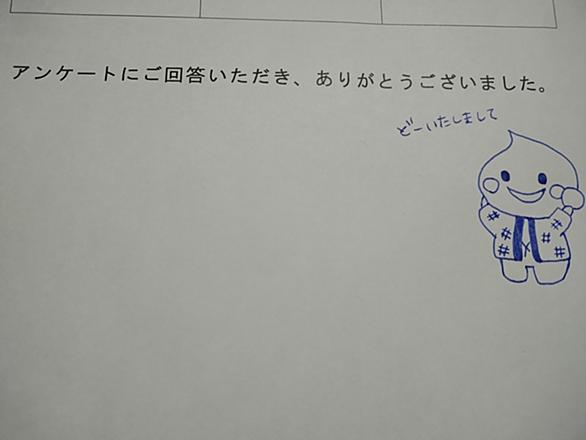 アンケートにご回答いただき、ありがとうございました。
どーいたしまして